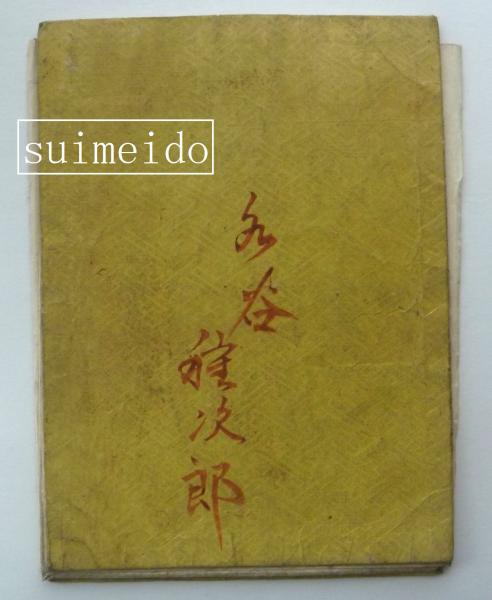 suimeido
水谷種次郎